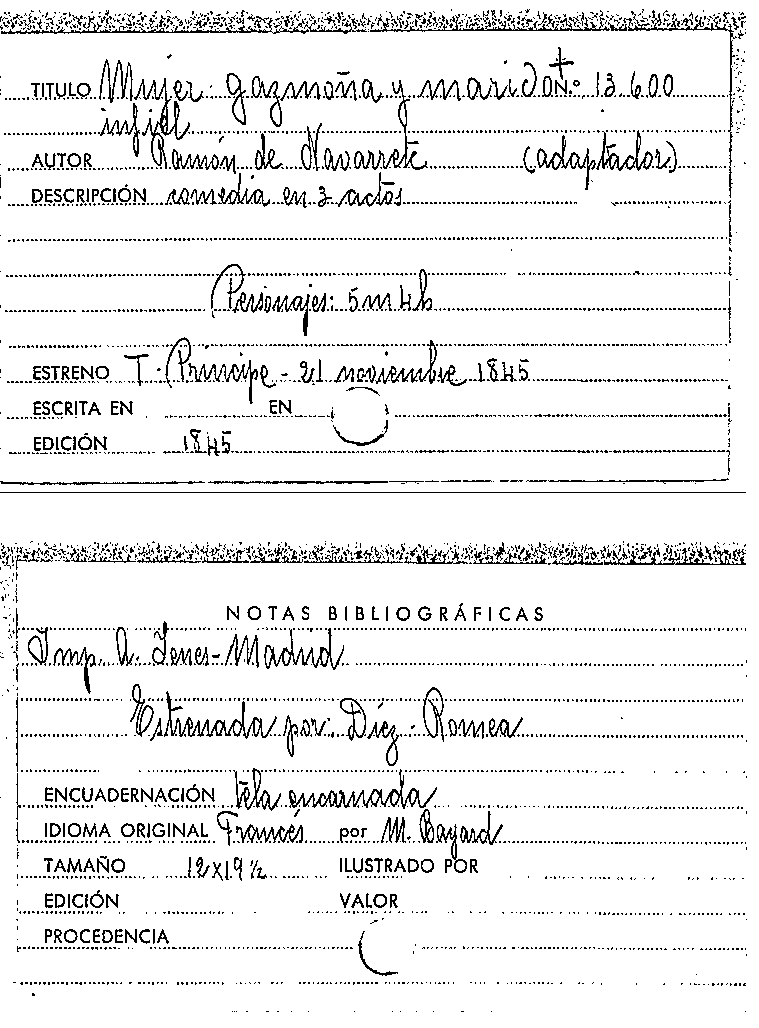 TITULO Mujer gazmoña y marido N.º 13.600
infiel
AUTOR Ramón de Navarrete (adaptador)
DESCRIPCIÓN comedia en 3 actos
Personajes: 5m 4h
ESTRENO T. Príncipe - 21 noviembre 1845
ESCRITA EN EN
EDICIÓN 1845
NOTAS BIBLIOGRÁFICAS
Imp. A. Yenes-Madrid
Estrenada por: Díez - Romea
ENCUADERNACIÓN tela encarnada
IDIOMA ORIGINAL Francés por M. Bayard
TAMAÑO 12x19 ½ ILUSTRADO POR
EDICIÓN VALOR
PROCEDENCIA